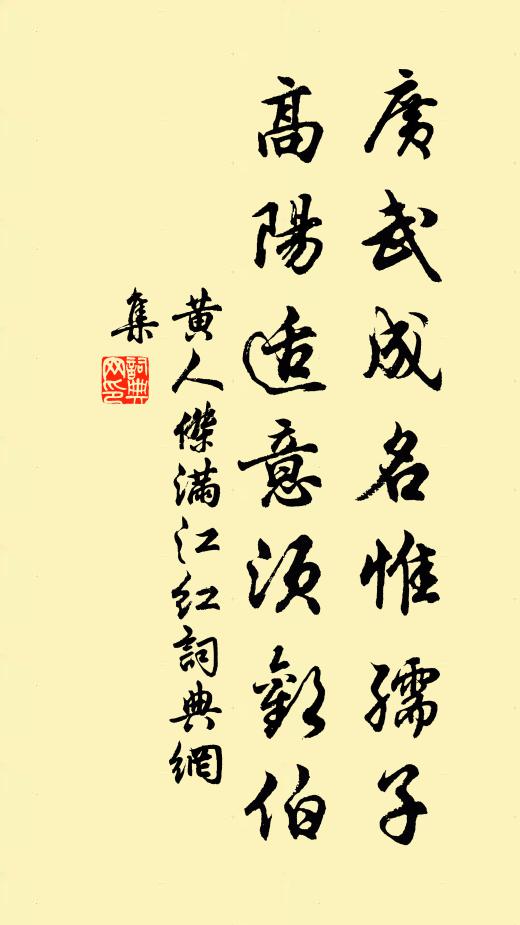 廣武成名惟孺子
高陽适意須歡伯
黄人傑滿江紅詞典網
集
詞典
网印